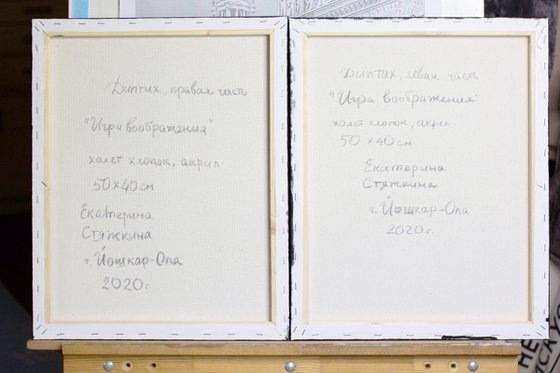 Диптих, правая часть
"Игра воображения"
холст хлопок, акрил
50×40см
Екатерина
Стяжкина
г. Йошкар-Ола
2020г.
Диптих, левая часть
"Игра воображения"
холст хлопок, акрил
50×40см
Екатерина
Стяжкина
г. Йошкар-Ола
2020г.